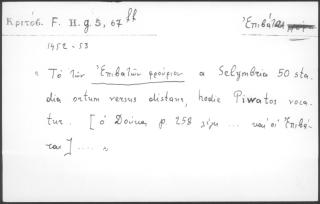 Κριτόβ. F. H. g. 5, 67 ff
Ἐπιβάται
1452 - 53
"Τὸ τῶν Ἐπιβατῶν φρούριον a Selymbria 50 sta-
dia ortum versus distans, hodie Piwatos voca-
tur.. [ὁ Δούκας p 258 λέγει ... καὶ οἱ Ἐπιβά-
ται] .... "